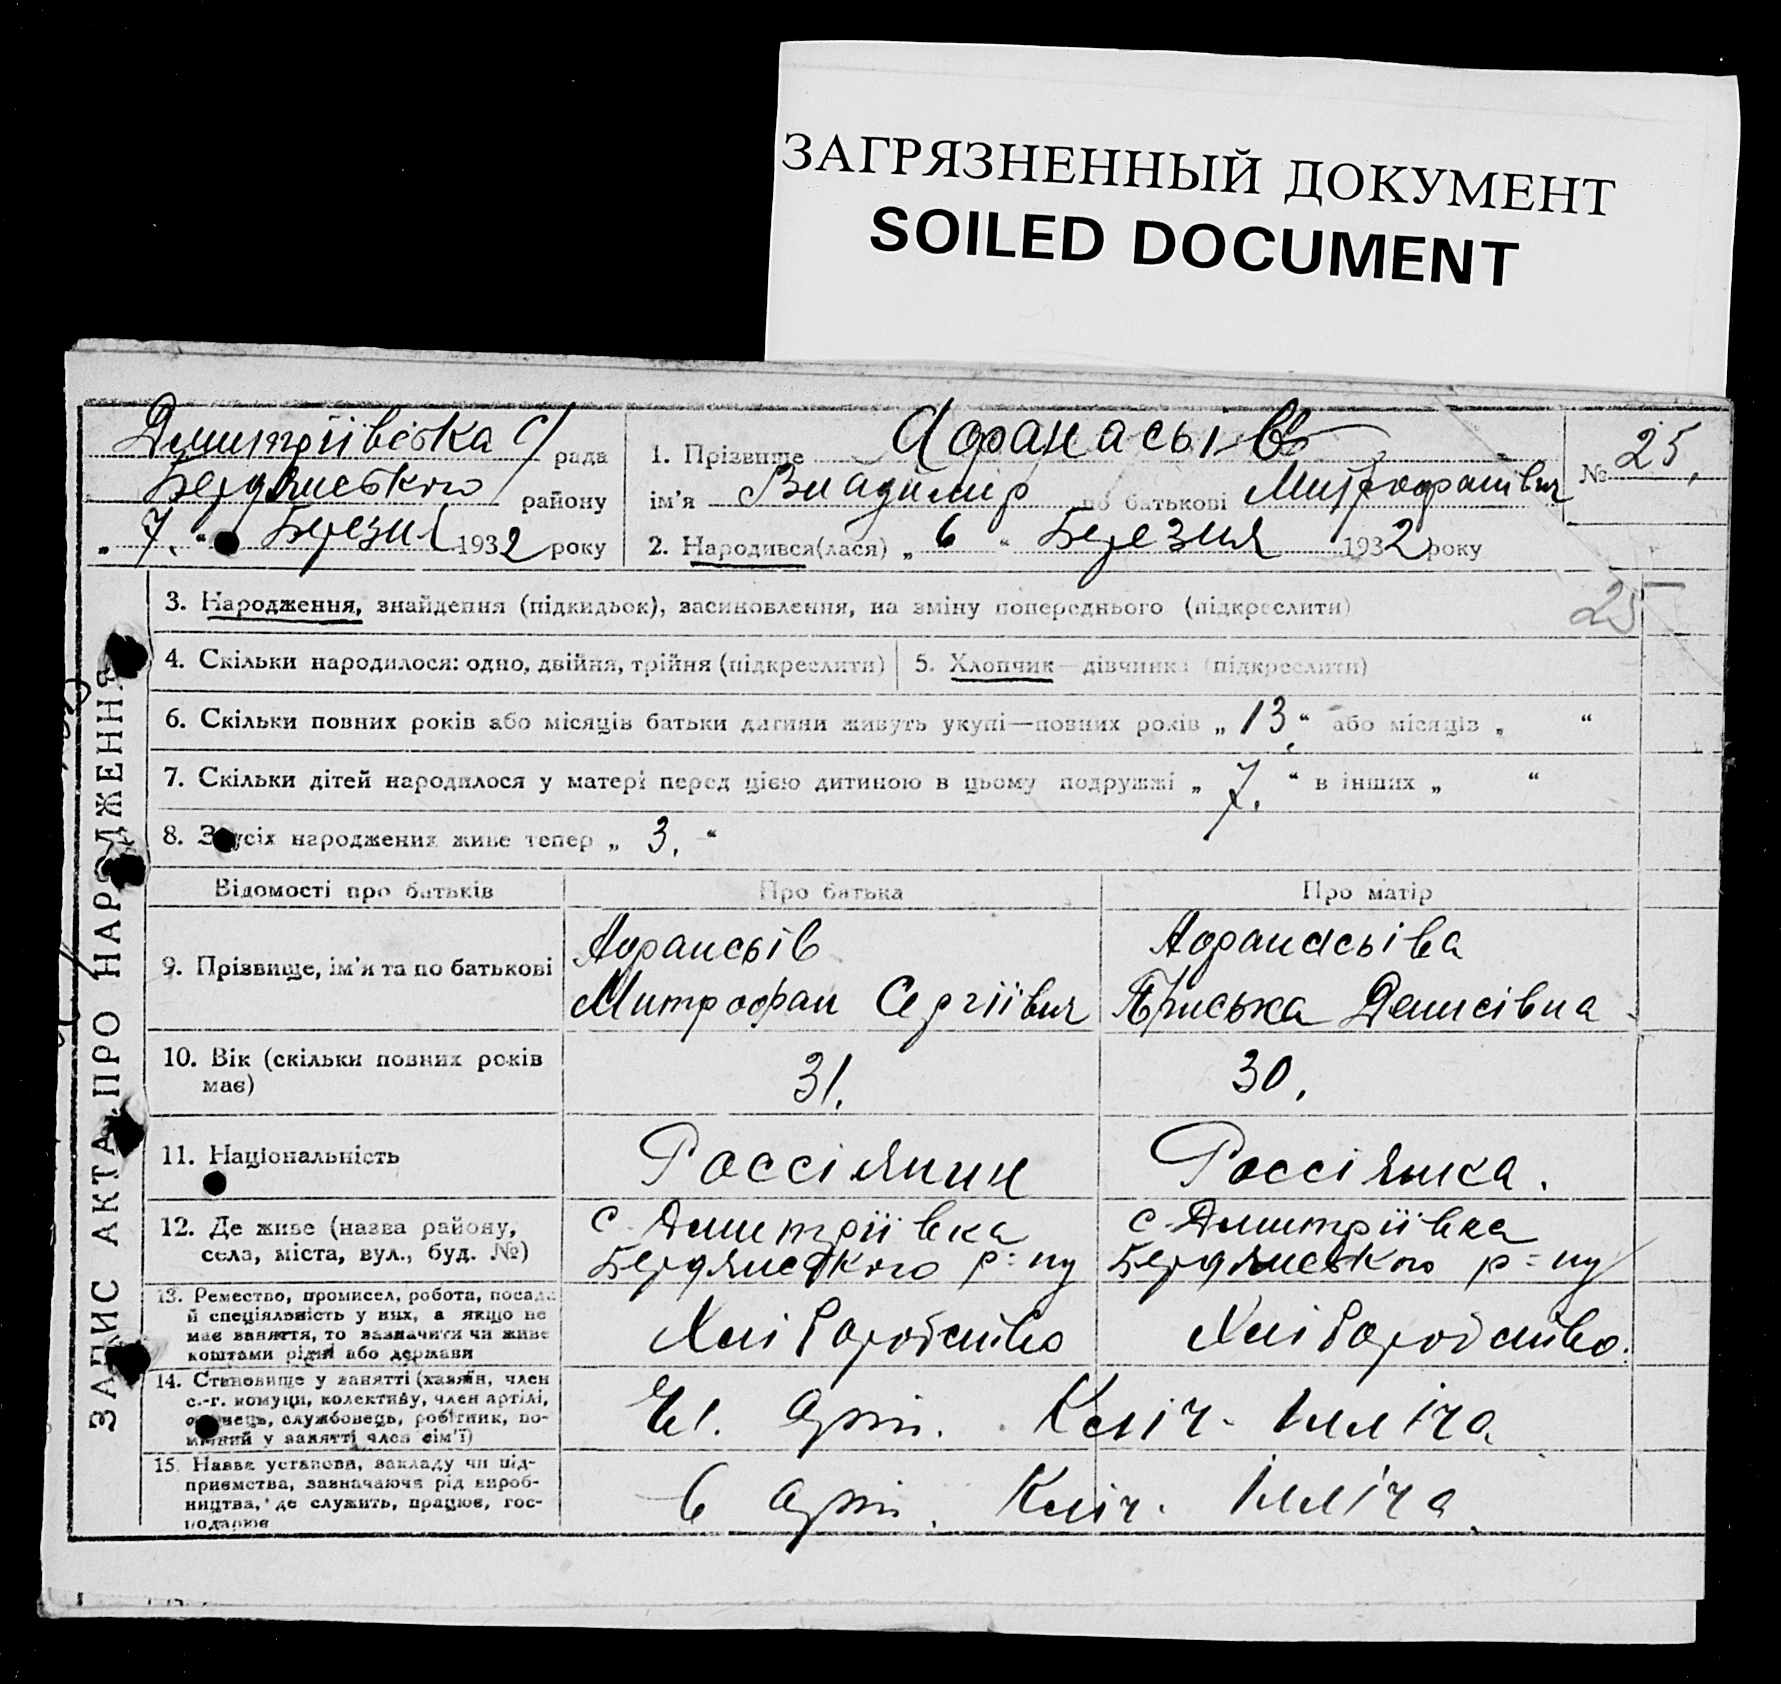 ЗАГРЯЗНЕННЫЙ ДОКУМЕНТ
SOILED DOCUMENT
Димитріівська с/ рада
Бердянського району
„ 7. “ Березня 1932 року
1. Прізвище Афанасьів
ім'я Владимір по батькові Митрофанівич
2. Народився(лася) „ 6 “ Березня 1932 року
№ 25.
25
ЗАПИС АКТА ПРО НАРОДЖЕННЯ
3. Народження, знайдення (підкидьок), засиновлення, на зміну попереднього (підкреслити)
4. Скільки народилося: одно, двійня, трійня (підкреслити)
5. Хлопчик—дівчинка (підкреслити)
6. Скільки повних років або місяців батьки дитини живуть укупі—повних років „ 13 “ або місяців „ “
7. Скільки дітей народилося у матері перед цією дитиною в цьому подружжі „ 7. “ в інших „ “
8. З усіх народжених живе тепер „ 3. “
Відомості про батьків Про батька Про матір
9. Прізвище, ім'я та по батькові
Афансьів
Митрофан Сергіівич
Афанасьіва
Приська Денисівна
10. Вік (скільки повних років
має)
31.
30.
11. Національність
Россіянин
Россіянка.
12. Де живе (назва району,
села, міста, вул., буд. №)
с. Димитріівка
Бердянського р=ну
с. Димитріівка
Бердянського р=ну
13. Ремество, промисел, робота, посада
й спеціяльність у них, а якщо не
має заняття, то зазначити чи живе
коштами рідні або держави
Хліборобство
Хліборобство.
14. Становище у занятті (хазяїн, член
с.-г. комуни, колективу, член артілі,
службовець, робітник, по-
мічний у занятті член сім'ї)
Чл. Арт. Ілліча
15. Назва установи, закладу чи під-
приємства, зазначаючи рід вироб-
ництва, де служить, працює, гос-
подарює
в Арт. Ілліча